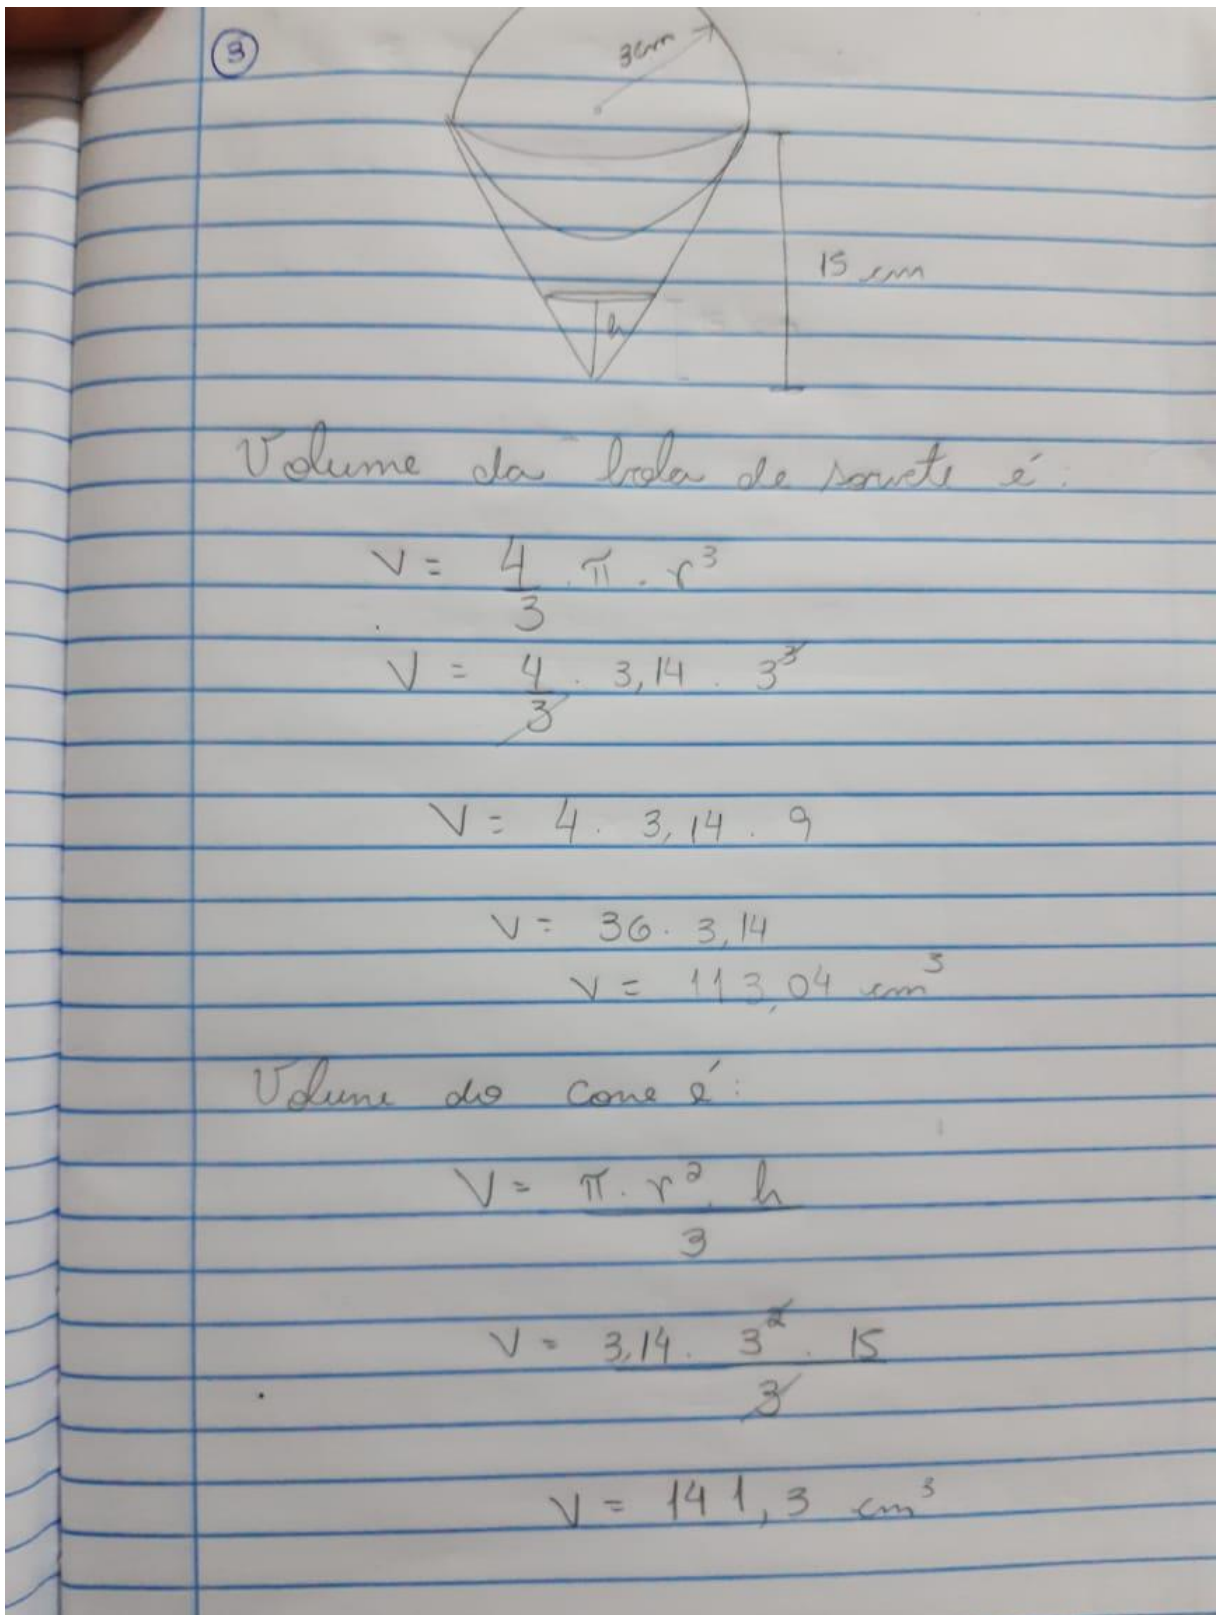 3
3cm
15 cm
h
Volume da bola de sorvete é:
V = 4/3 . π . r³
V = 4/3 . 3,14 . 3³
V = 4 . 3,14 . 9
V = 36 . 3,14
V = 113,04 cm³
Volume do cone é:
V = π . r² . h / 3
V = 3,14 . 3² . 15 / 3
V = 141,3 cm³